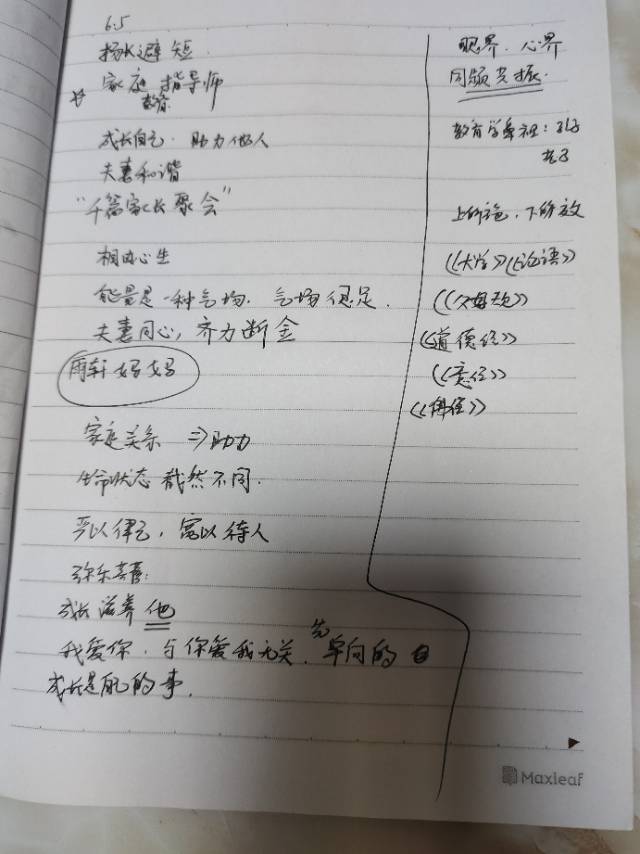 6.5
扬长避短
家庭教育指导师
成长自己·助力他人
夫妻和谐
“千篇家长聚会”
相由心生
能量是一种气场.气场很足.
夫妻同心,齐力断金
雨轩妈妈
家庭关系 ⇒助力
生命状态截然不同.
严以律己,宽以待人
成长滋养他
我爱你.与你爱我无关.先单向的
成长是我的事.
眼界.心界
同频共振.
教育学鼻祖:孔子
老子
上所施,下所效
《大学》《论语》
《道德经》
Maxleaf